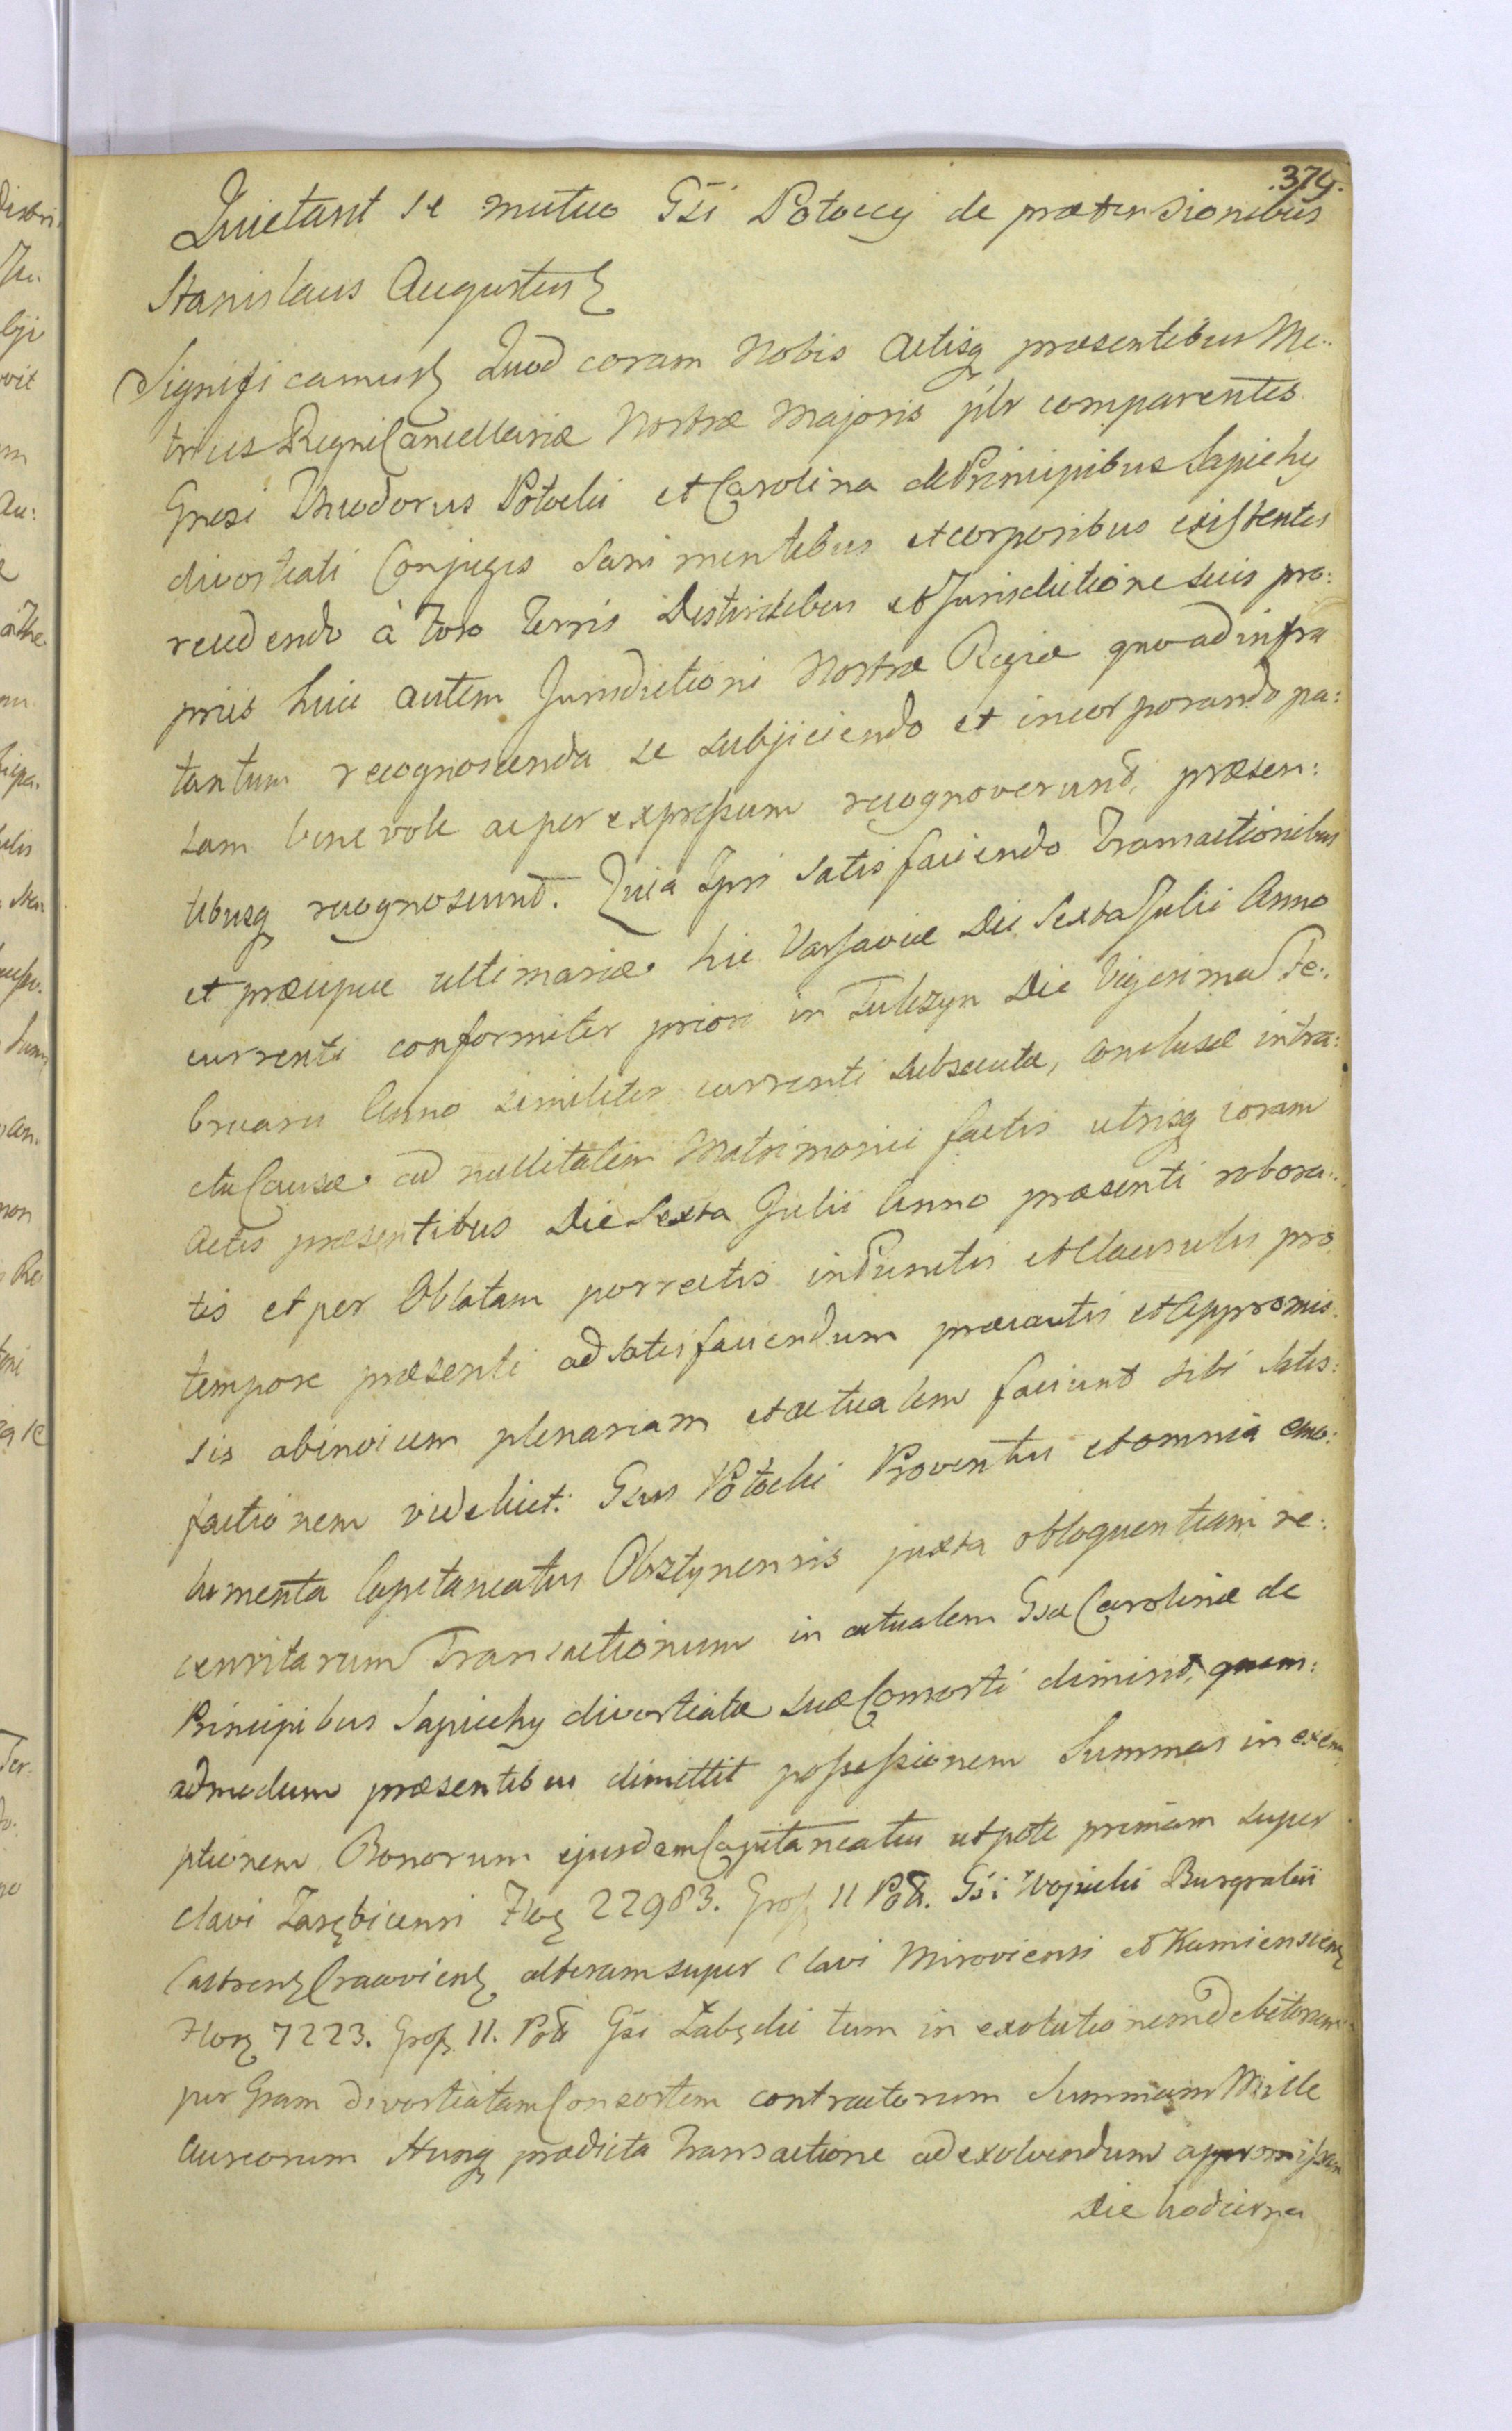 .379.
Quietant se mutuo Gsi Potoccy de prætensionibus
Stanislaus Augustus
Significamus Quod coram Nobis Actisq præsentibus Me:
trices Regni Cancellariæ Nostræ Majoris plr comparentes
Gnesi Theodorus Potocki et Carolina de Principibus Sapiehy
divortiati Conjuges sani mentibus et corporibus existentes
recedendo à Foro Terris Districtibus et Jurisdictione suis pro:
priis huic autem Jurisdictioni Nostræ Regiæ quo ad infra
tantum recognoscenda se subjiciendo et incorporando pa:
lam benevole ac per expressum recognoverunt, præsen:
tibusq recognoscunt. Quia Ipsi satisfaciendo Transactionibus
et præcipue ultimariæ hic Varsaviæ Die Sexta Julii Anno
currenti conformiter priori in Tulczyn Die Vigesima Fe:
bruarii Anno similiter currenti subsecutæ, conclusæ intra:
ctu Causæ ad nullitatem Matrimonii factis utrisq coram
Actis præsentibus Die Sexta Julii Anno præsenti robora:
tis et per Oblatam porrectis in Punctis et Clausulis pro
tempore præsenti ad satisfaciendum præcautis et appromis:
sis abinvicem plenariam et actualem faciunt sibi satis:
factionem videlicet: Gsus Potocki Proventus et omnia emo:
lumenta Capitaneatus Olsztynensis juxta obloquentiam re:
censitarum Transactionum in actualem Gsæ Carolinæ de
Principibus Sapiehy divortiatæ suæ Consorti dimisit, quem:
admodum præsentibus dimittit possessionem Summas in exem
ptionem Bonorum ejusdem Capitaneatus utpote primam super
clavi Zarębicensi Flor 22983. Gross 11 Pol. Gsi Wojcicki Burgrabii
Castrens Cracoviens alteram super Clavi Miroviensi et Kamiensciens
Flor 7223. Gross 11. Pol Gsi Łabęcki tum in exolutionem debitorum
per Gsam divortiatam Consortem contractorum Summam Mille
Aureorum Hung prædicta Transactione ad exolvendum appromissam
Die hodierna